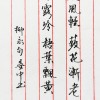 風輕蘋花漸老
露冷梧葉飄黃
柳永句